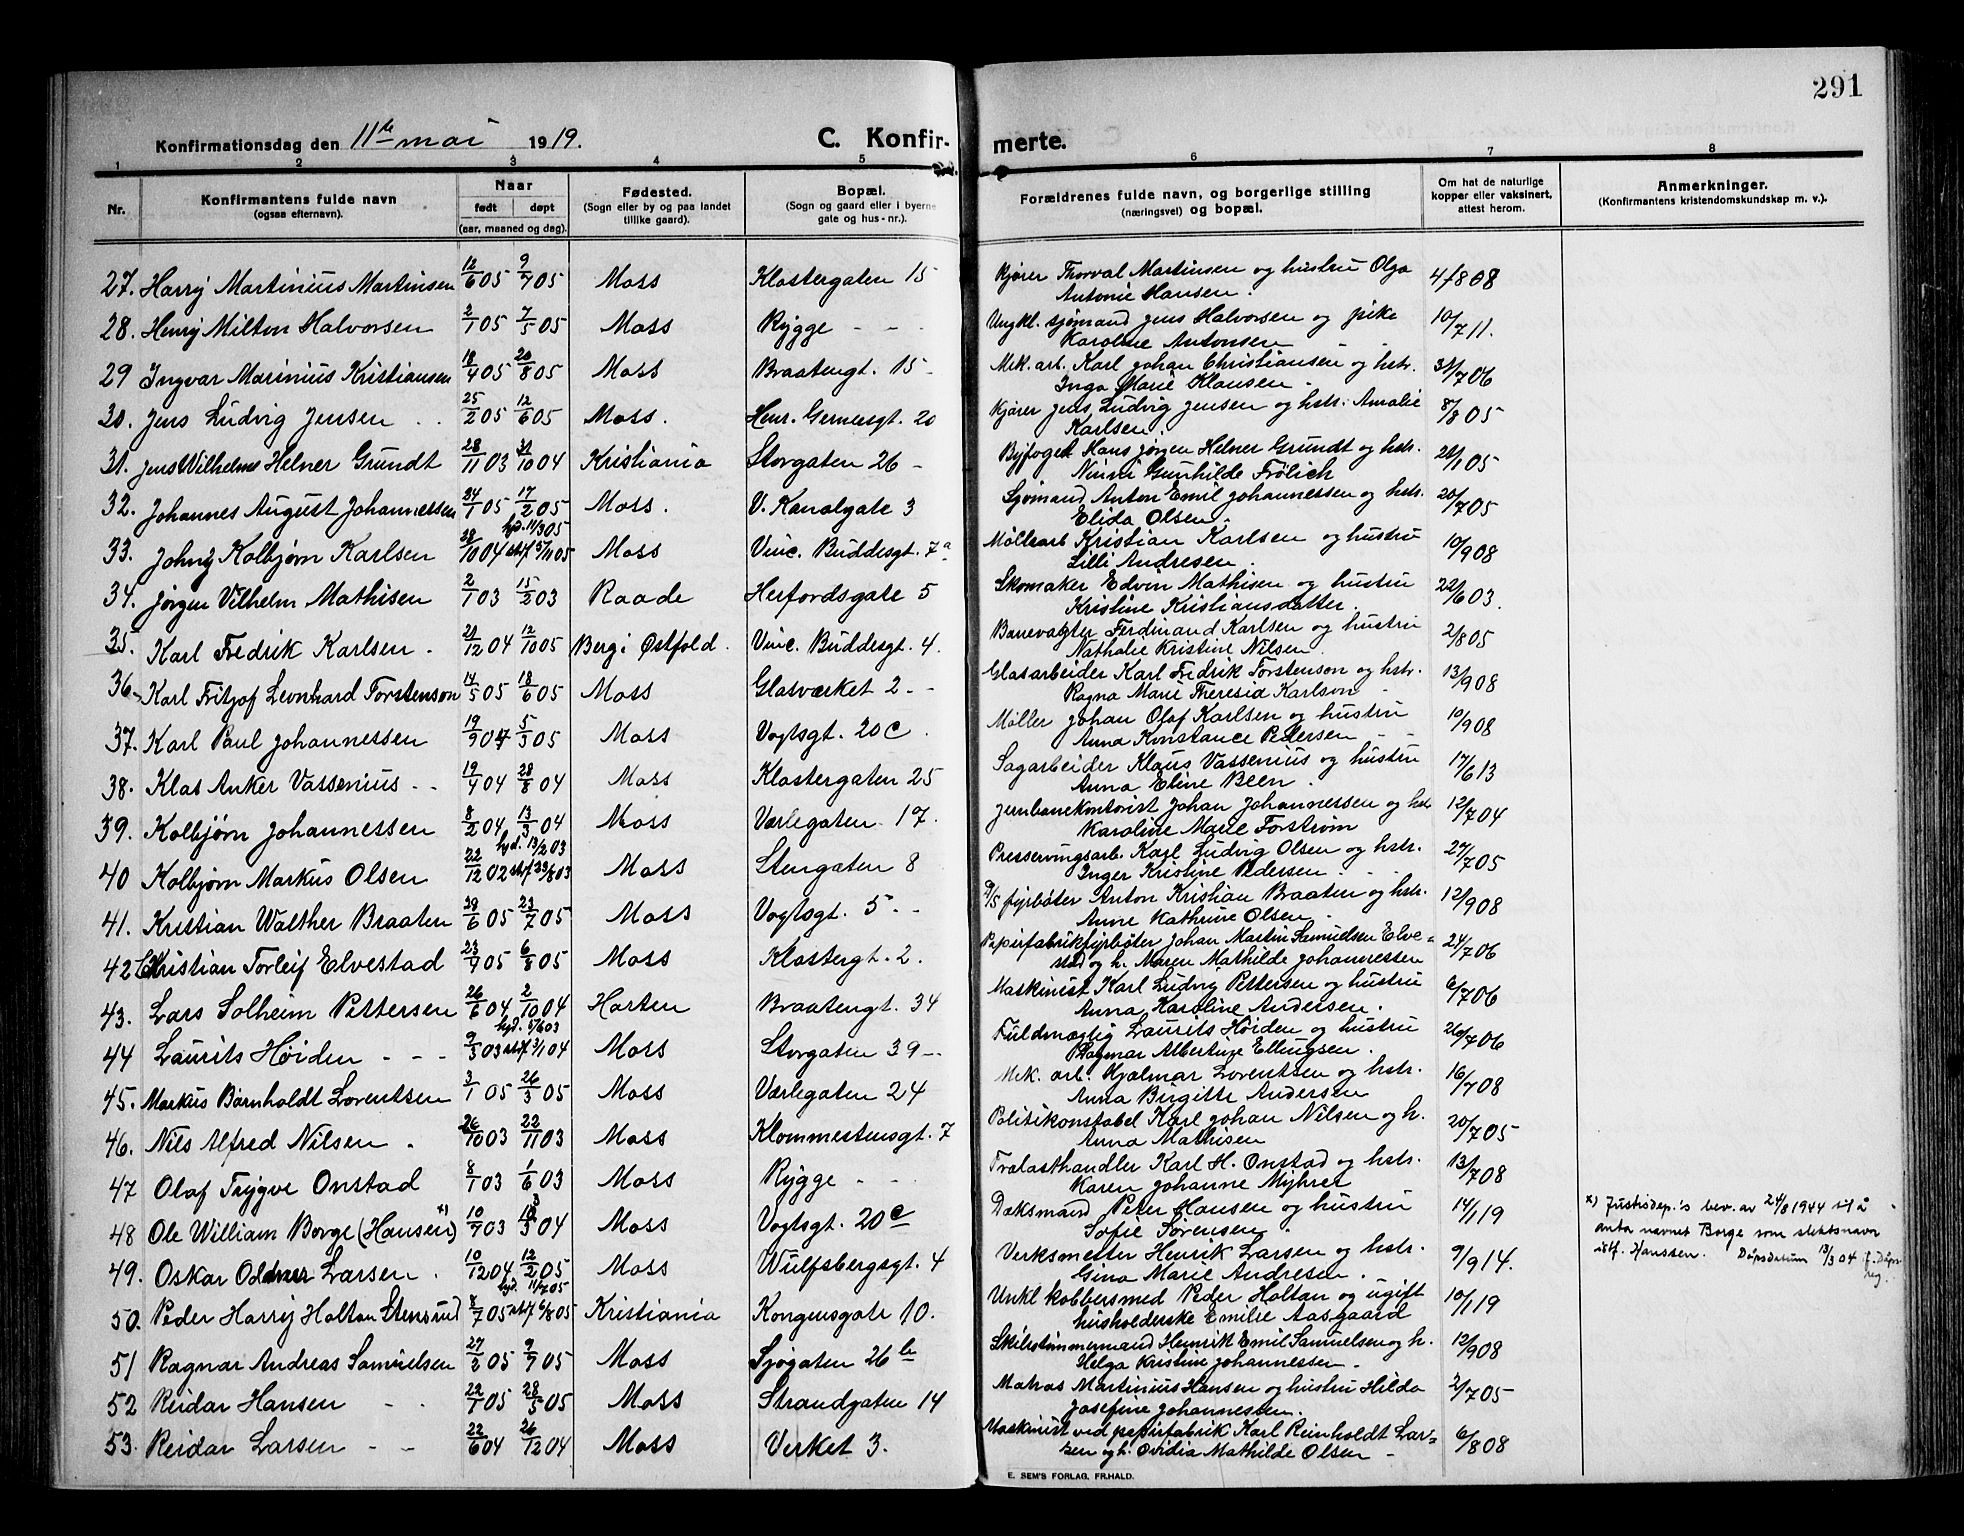 291
Konfirmationsdag den 11te mai 1919.
C. Konfir-
merte.
1 2 3 4 5 6 7 8
Nr.
Konfirmantens fulde navn
(ogsaa efternavn).
Naar
født døpt
(aar, maaned og dag).
Fødested.
(Sogn eller by og paa landet
tillike gaard).
Bopæl.
(Sogn og gaard eller i byerne
gate og hus-nr.).
Forældrenes fulde navn, og borgerlige stilling
(næringsvei) og bopæl.
Om hat de naturlige
kopper eller vaksinert,
attest herom.
Anmerkninger.
(Konfirmantens kristendomskundskap m. v.).
27. Harry Martinius Martinsen 12/6 05 9/7 05 Moss Klostergaten 15 Kjører Thorval Martinsen og hustru Olga 4/8 08
Antonie Hansen.
28. Henry Milton Halvorsen 2/1 05 7/5 05 Moss Rygge - - Ungkl. sjømand Jens Halvorsen og pike 10/7 11.
Karoline Antonsen - -
29 Ingvar Marinius Kristiansen 18/4 05 20/8 05 Moss Braatengt. 15 - Mek. arb. Karl Johan Christiansen og hstr. 31/7 06
Inga Marie Klausen.
30. Jens Ludvig Jensen . . 25/2 05 12/6 05 Moss. Henr. Gernersgt. 20 Kjører Jens Ludvig Jensen og hstr. Amalie 8/8 05
Karlsen.
31. Jens Wilhelm Helner Grundt 28/11 03 31/10 04 Kristiania Storgaten 26 - Byfoget Hans Jørgen Helner Grundt og hstr. 21/1 05
Ninni Gunhilde Frölich
32. Johannes August Johannessen 24/1 05 17/2 05 Moss. V. Kanalgate 3 Sjømand Anton Emil Johannessen og hstr. 20/7 05
Elida Olsen.
hjd. 11/3 05
33. Johny Kolbjørn Karlsen 28/10 04 stf. 5/11 05 Moss Vinc. Buddesgt. 7a Møllearb Kristian Karlsen og hustru 10/9 08
Lilli Andresen.
34. Jørgen Vilhelm Mathisen 2/1 03 15/2 03 Raade Herfordsgate 5 Skomaker Edvin Mathisen og hustru 22/6 03.
Kristine Kristiansdatter.
35. Karl Fredrik Karlsen . 21/12 04 12/10 05 Berg i Østfold. Vinc. Buddesgt. 4. Banevagter Ferdinand Karlsen og hustru 2/8 05
Nathalie Kristine Nilsen.
36 Karl Fritjof Leonhard Torstenson 14/5 05 18/6 05 Moss Glasværket 2 - - Glasarbeider Karl Fredrik Torstenson og hstr. 13/9 08
Ragna Marie Theresia Karlson -
37. Karl Paul Johannessen 19/9 04 5/3 05 Moss Vogtsgt. 20 C. Møller Johan Olaf Karlsen og hustru 10/9 08
Anna Konstance Pedersen - -
38. Klas Anker Vassenius - - 19/4 04 28/8 04 Moss Klostergaten 25 Sagarbeider Klaus Vassenius og hustru 17/6 13
Anna Eline Been.
39. Kolbjørn Johannessen 8/2 04 13/3 04 Moss Værlegaten 17. Jernbanekontorist Johan Johannessen og hstr 12/7 04
Karoline Marie Forstrøm
hjd. 13/2 03
40 Kolbjørn Markus Olsen 22/12 02 stf. 23/8 03 Moss Stengaten 8 Presseringsarb. Karl Ludvig Olsen og hstr. 27/7 05
Inger Kristine Pedersen.
41. Kristian Walther Braaten 28/6 05 23/7 05 Moss Vogtsgt. 5 - - D/S fyrbøter Anton Kristian Braaten og hstr. 12/9 08
Anne Kathrine Olsen
42 Kristian Torleif Elvestad 05 6/8 05 Moss Klostergt. 2. Papirfabrikfyrbøter Johan Martin Samuelsen Elve= 24/7 06
stad og h. Maren Mathilde Johannessen
43. Lars Solheim Pettersen 26/6 04 2/10 04 Horten Braatengt. 34 Maskinist Karl Ludvig Pettersen og hustru 6/7 06
Anna Karoline Andersen.
hjd. 5/6 03
44 Laurits Høiden - - - 9/3 03 stf. 3/1 04 Moss Storgaten 39 - - Fuldmægtig Laurits Høiden og hustru 26/7 06
Dagmar Albertine Ellingsen.
45. Markus Børnholdt Lorentsen 3/1 05 26/3 05 Moss Værlegaten 24 Mek. arb. Hjalmar Lorentsen og hstr. 16/7 08
Anna Birgitte Andersen
46. Nils Alfred Nilsen . 26/10 03 22/11 03 Moss Klommestensgt. 7 Politikonstabel Karl Johan Nilsen og h. 20/7 05
Anna Mathisen
47 Olaf Trygve Onstad 8/1 03 1/6 03 Moss Rygge - - - Trælasthandler Karl H. Onstad og hstr. 13/7 08
Karen Johanne Myhrer
48 Ole William Borge (Hansen x)) 10/7 03 13/3 04 Moss Vogtsgt. 20 C Dæksmand Peter Hansen og hustru 14/1 19
Sofie Sørensen.
x) Justisdep.'s bev. av 24/8 1944 til å
anta navnet Borge som slektsnavn
istf. Hanssen. Dåpsdatum 13/3 04 if. Dåps
reg.
49. Oskar Oddner Larsen . 10/12 04 12/2 05 Moss Wulfsbergsgt. 4 Verksmester Henrik Larsen og hstr. 9/9 14.
Gina Marie Andresen.
hjd. 11/7 05
50. Peder Harry Holtan Stensrud 8/7 05 stf. 6/8 05 Kristiania Kongensgate 10. Unkl kobbersmed Peder Holtan og ugift 10/1 19
husholderske Emilie Aasgaard
51 Ragnar Andreas Samuelsen 27/2 05 9/7 05 Moss Sjøgaten 26 b Skibstømmermand Henrik Emil Samuelsen og h. 12/9 08
Helga Kristine Johannessen -
52 Reidar Hansen - - 22/1 05 28/5 05 Moss Strandgaten 14 Matros Martinius Hansen og hustru Hilda 2/7 05
Josefine Johannessen.
53. Reidar Larsen - - 22/6 04 26/12 04 Moss Verket 3. Maskinist ved papirfabrik Karl Reinholdt Lar= 6/8 08
sen og h. Ovidia Mathilde Olsen -
E. SEM'S FORLAG, FR.HALD.